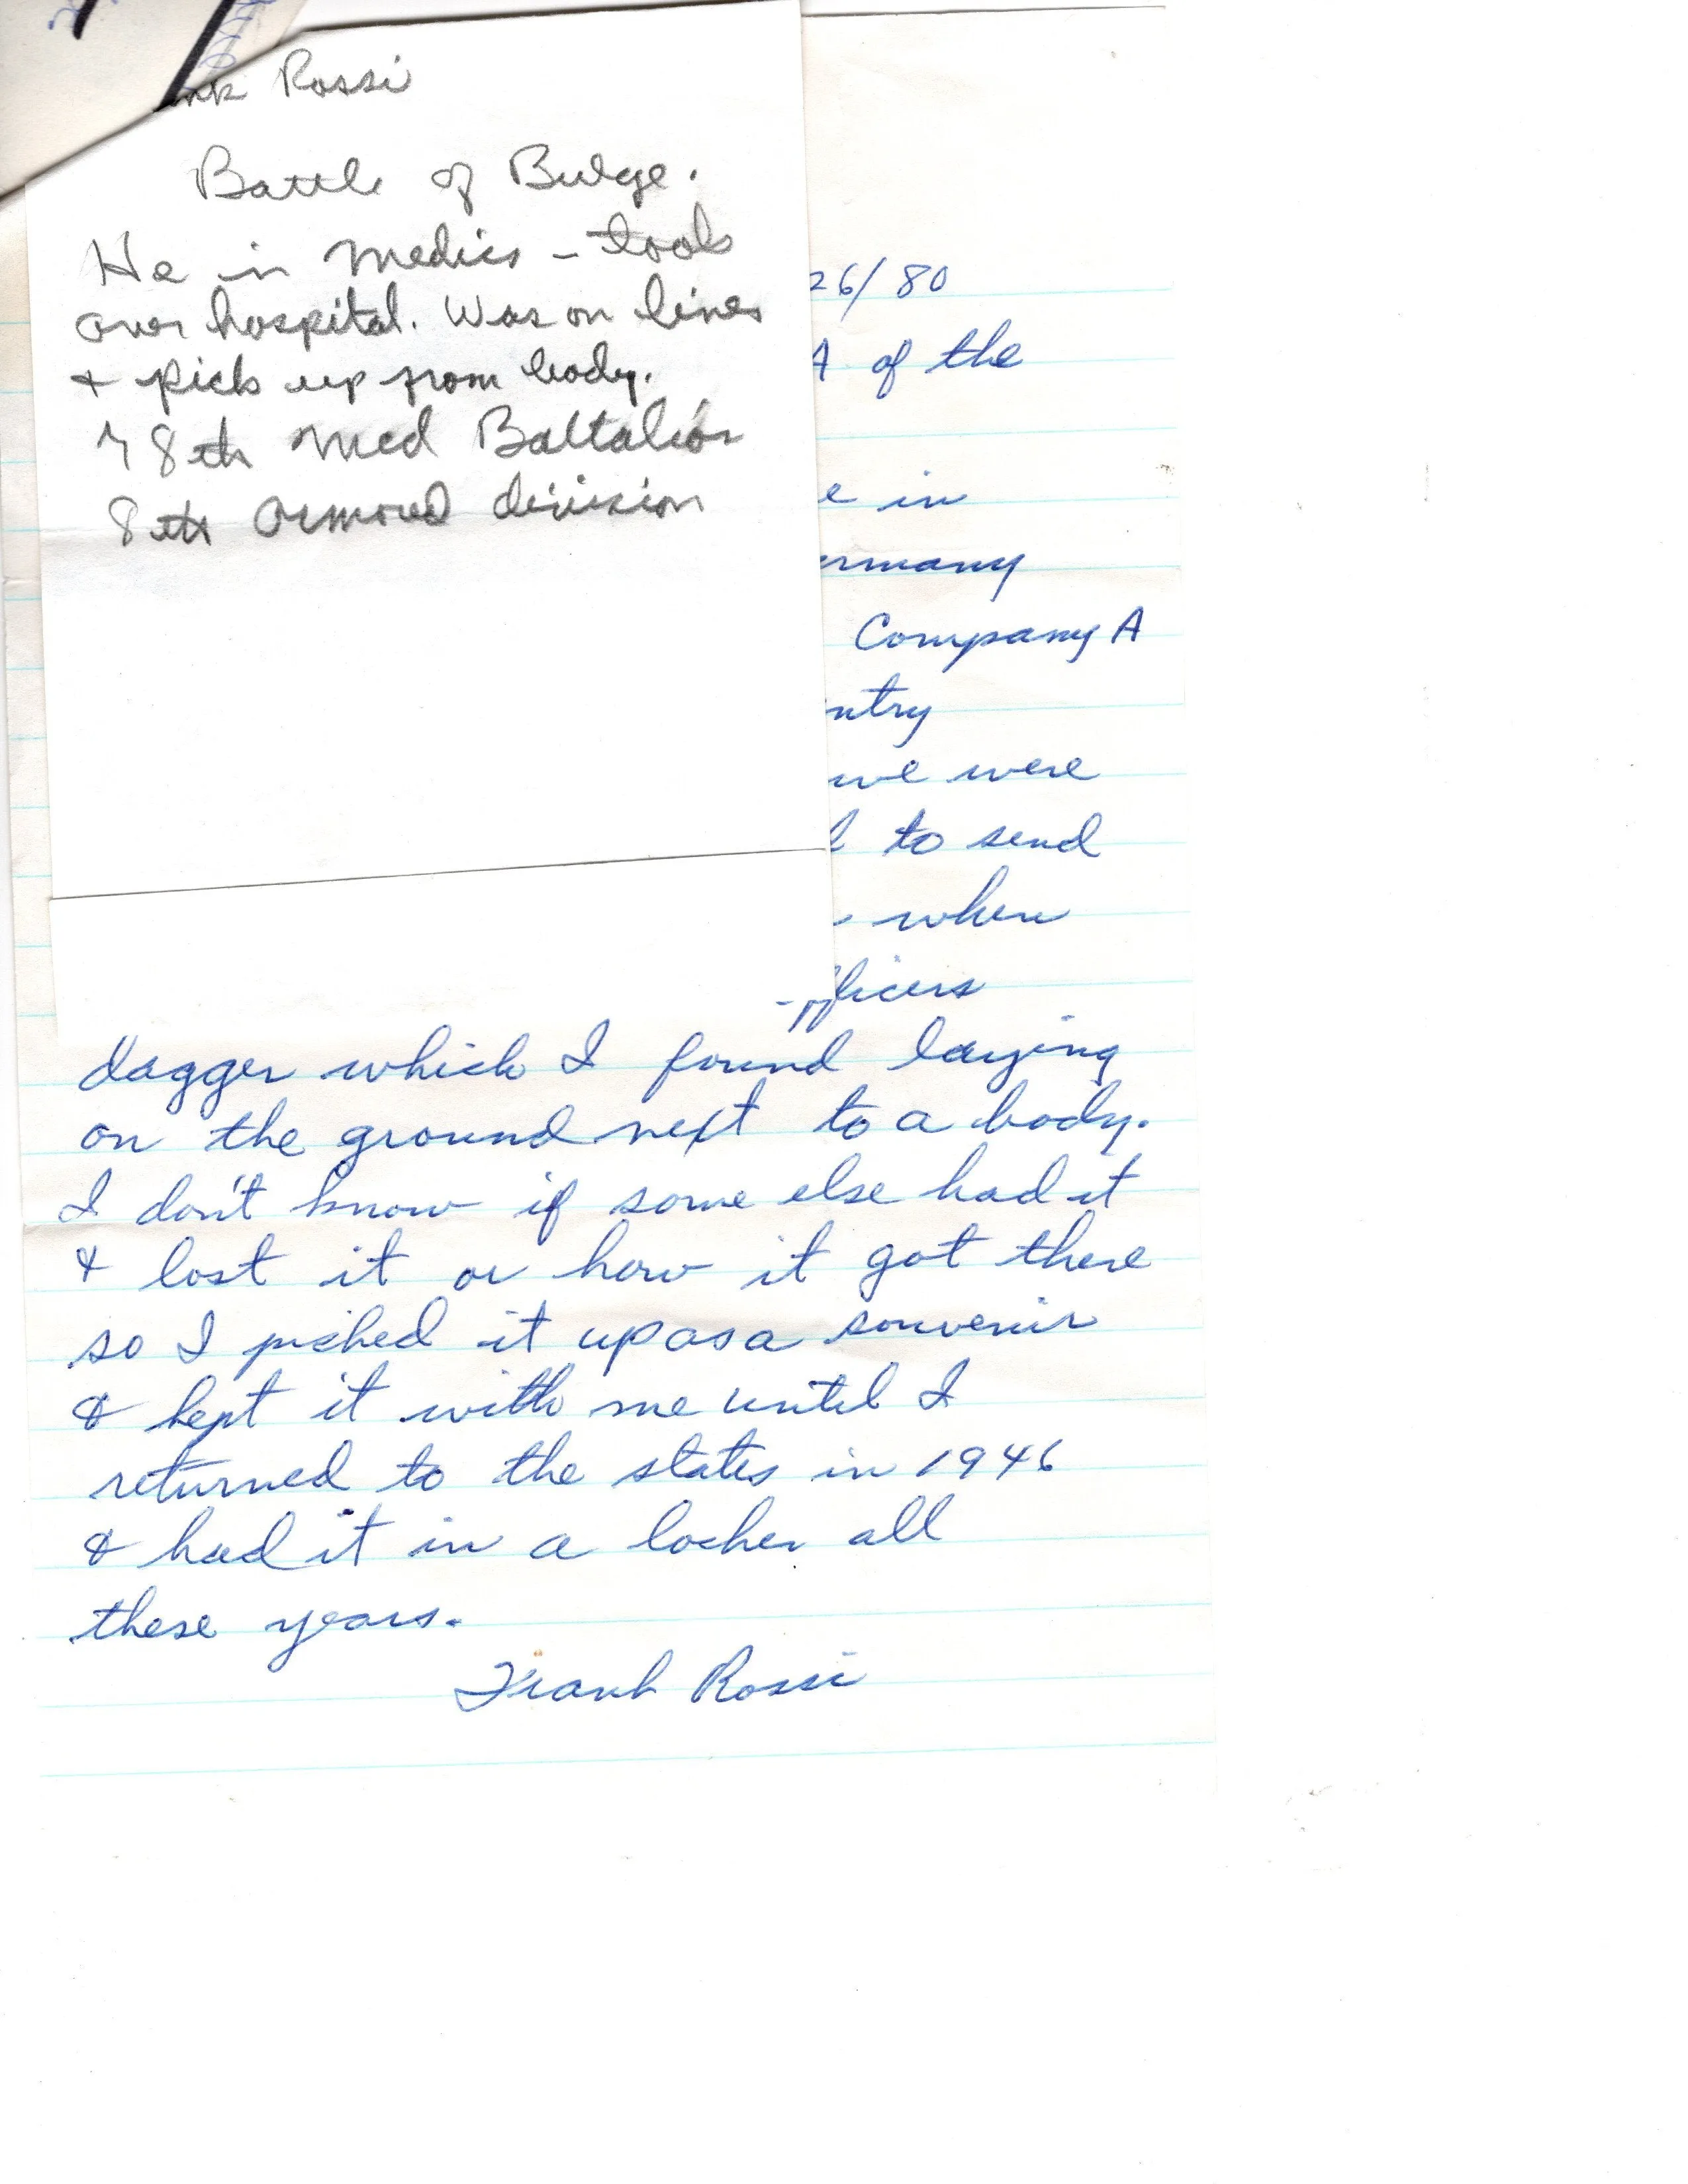 Rossi
Battle of Bulge.
He in medics - took
over hospital. Was on lines
+ pick up from body.
78th Med Battalion
8th Armored division
26/80
A of the
in
Company A
we were
to send
when
dagger which I found laying
on the ground next to a body.
I don't know if some else had it
& lost it or how it got there
so I picked it up as a souvenir
& kept it with me until I
returned to the states in 1946
& had it in a locker all
these years.
Frank Rossi